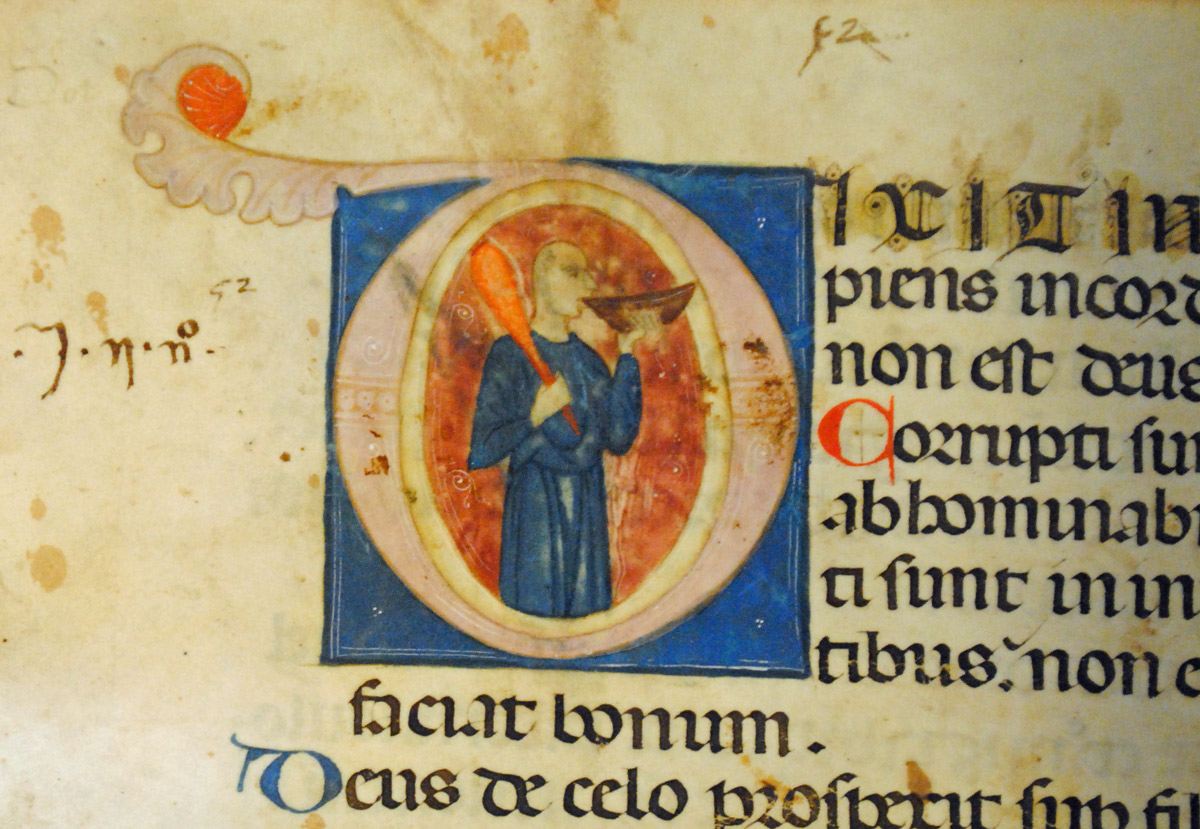 52
DIXIT IN
piens in cord
52
.J.n.nº.
non est deus
Corrupti sun
abhominabi
ti sunt in in
tibus: non e
faciat bonum.
Deus de celo prospexit sup fil